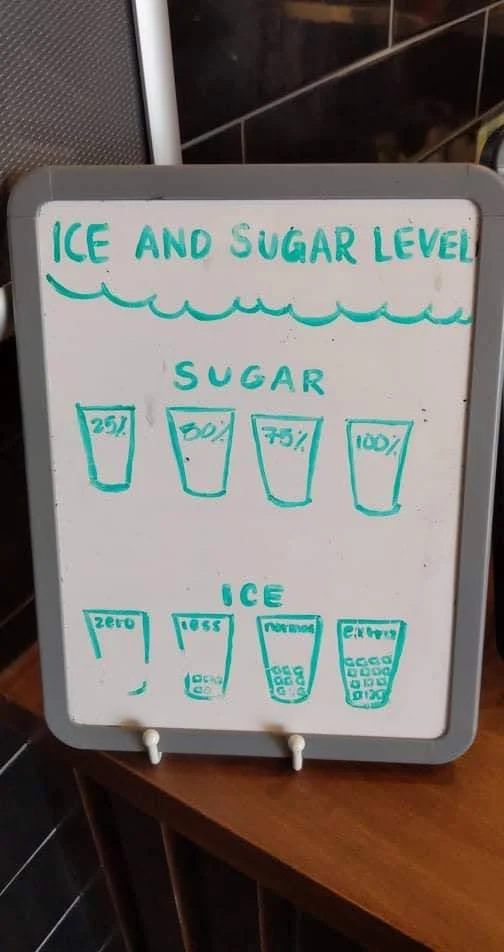 ICE AND SUGAR LEVEL
SUGAR
25% 50% 75% 100%
ICE
zero less normal extra